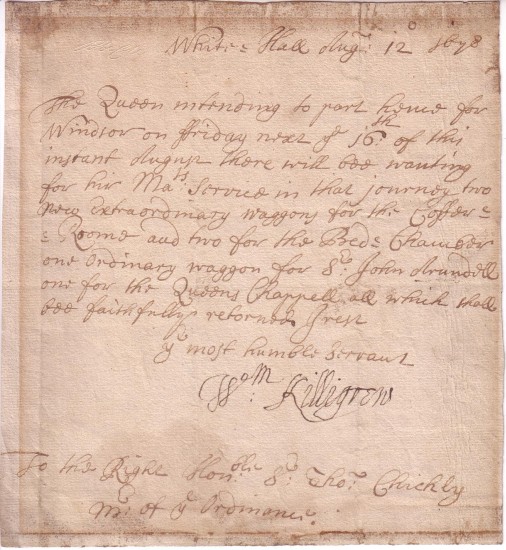 White Hall Aug: 12º 1678
The Queen intending to part hence for
Windsor on ffriday next yͤ 16th. of this
instant August there will bee wanting
for hir Maᵗˢ: Service in that journey two
new extraordinary waggons for the Coffer=
=Roome and two for the Bed=Chamber
one Ordinary waggon for Sʳ: John Arundell
one for the Queens Chappell all which shall
bee faithfully retorned I rest
yͬ most humble Servant
Wᵒᵐ: Killigrew
To the Right Honᵒᵇˡᵉ Sʳ: Thoˢ: Chichly
Mʳ: of yͤ Ordinance.